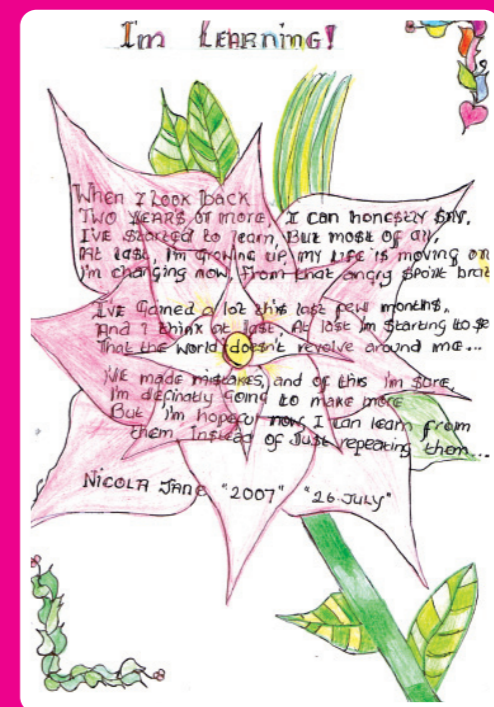 I'm LEARNING!
When I Look Back
TWO YEARS or more, I can honestly say,
I'VE started to learn, But most of all,
At last, I'm Growing up, my life is moving on
I'm changing now, from that angry spoilt brat
I,VE Gained a lot this last few months,
And I think at last, At last im starting to se
That the world doesn't revolve around me...
I'VE made mistakes, and of this I'm sure,
I'm definatly Going to make more
But I'm hopeful now I can learn from
them, Instead of Just repeating them...
NICOLA JANE "2007" "26 JULY"